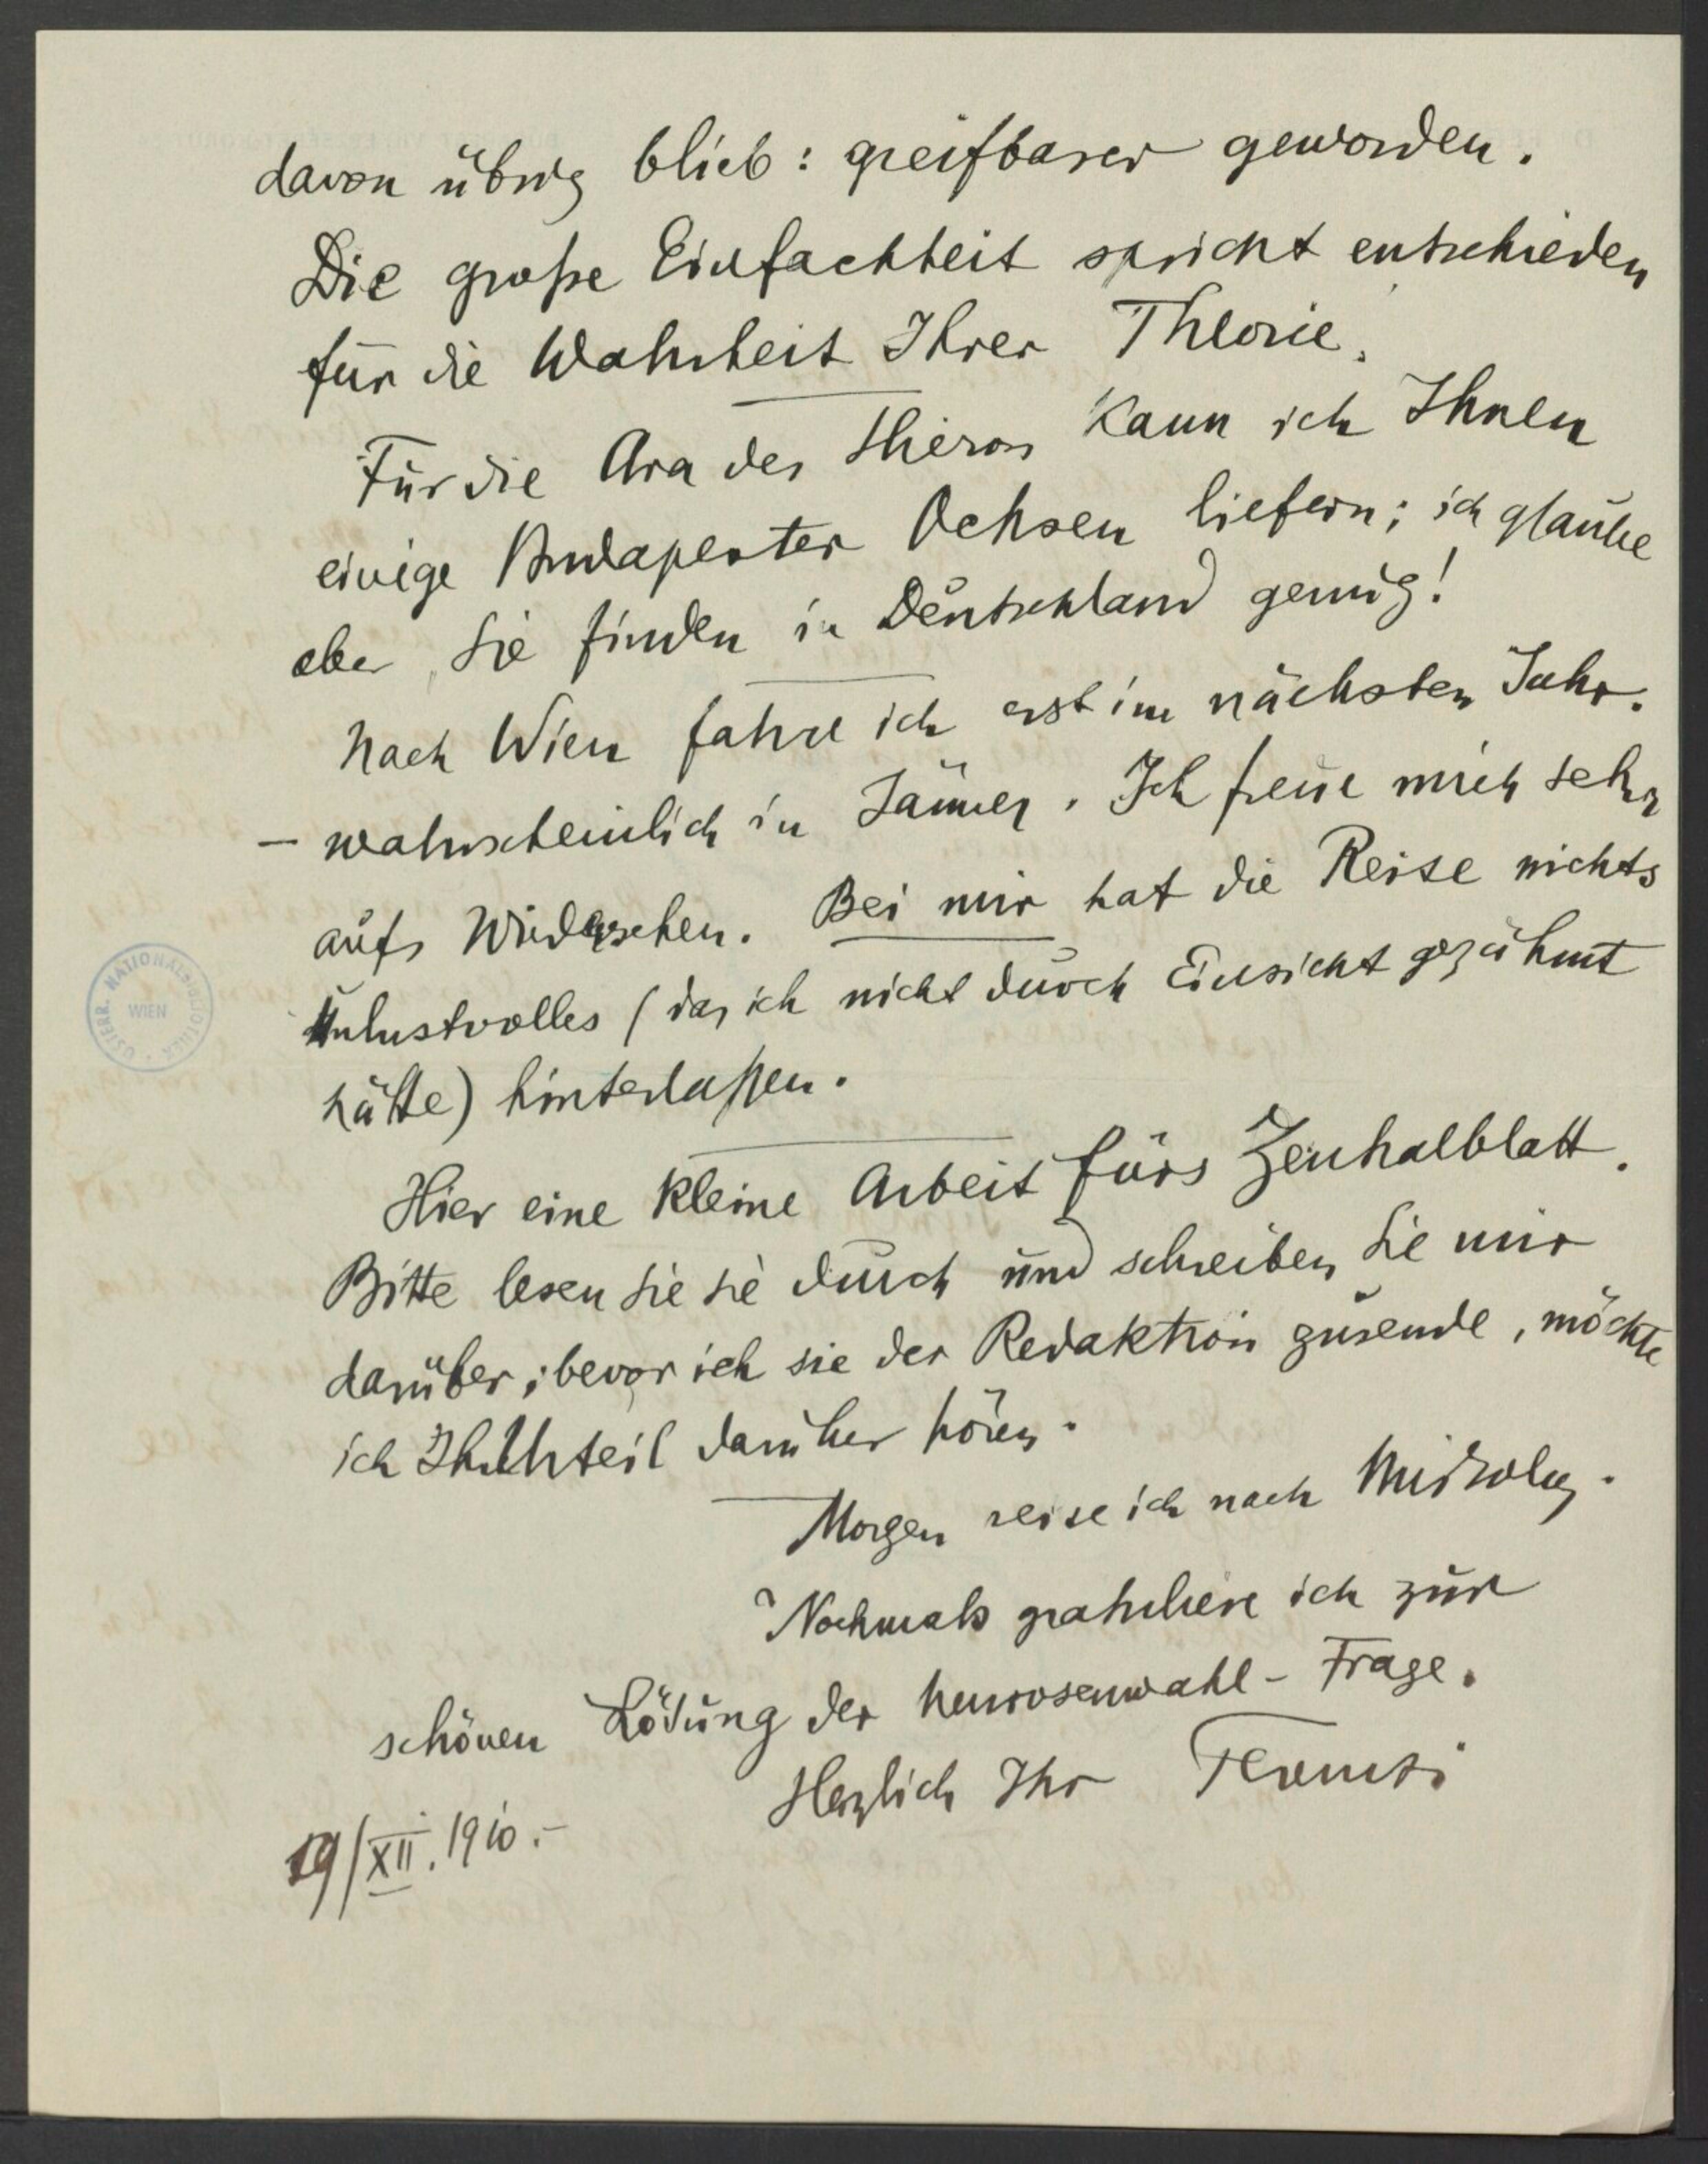 davon übrig blieb: greifbarer geworden.
Die große Einfachheit spricht entschieden
für die Wahrheit Ihrer Theorie.
Für die Ara des Hieron kann ich Ihnen
einige Budapester Ochsen liefern; ich glaube
aber, Sie finden in Deutschland genug!
Nach Wien fahre ich erst im nächsten Jahr.
– wahrscheinlich im Jänner. Ich freue mich sehr
aufs Wiedersehen. Bei mir hat die Reise nichts
Unlustvolles (das ich nicht durch Einsicht gezähmt
hätte) hinterlaßen.
Hier eine kleine Arbeit fürs Zentralblatt.
Bitte lesen Sie sie durch und schreiben Sie mir
darüber; bevor ich sie der Redaktion zusende, möchte
ich Ihr Urteil darüber hören.
Morgen reise ich nach Miskolcz.
Nochmals gratuliere ich zur
schönen Lösung der Neurosenwahl-Frage.
Herzlich Ihr Ferenczi
19/XII. 1910.–
ÖSTERR. NATIONALBIBLIOTHEK
WIEN